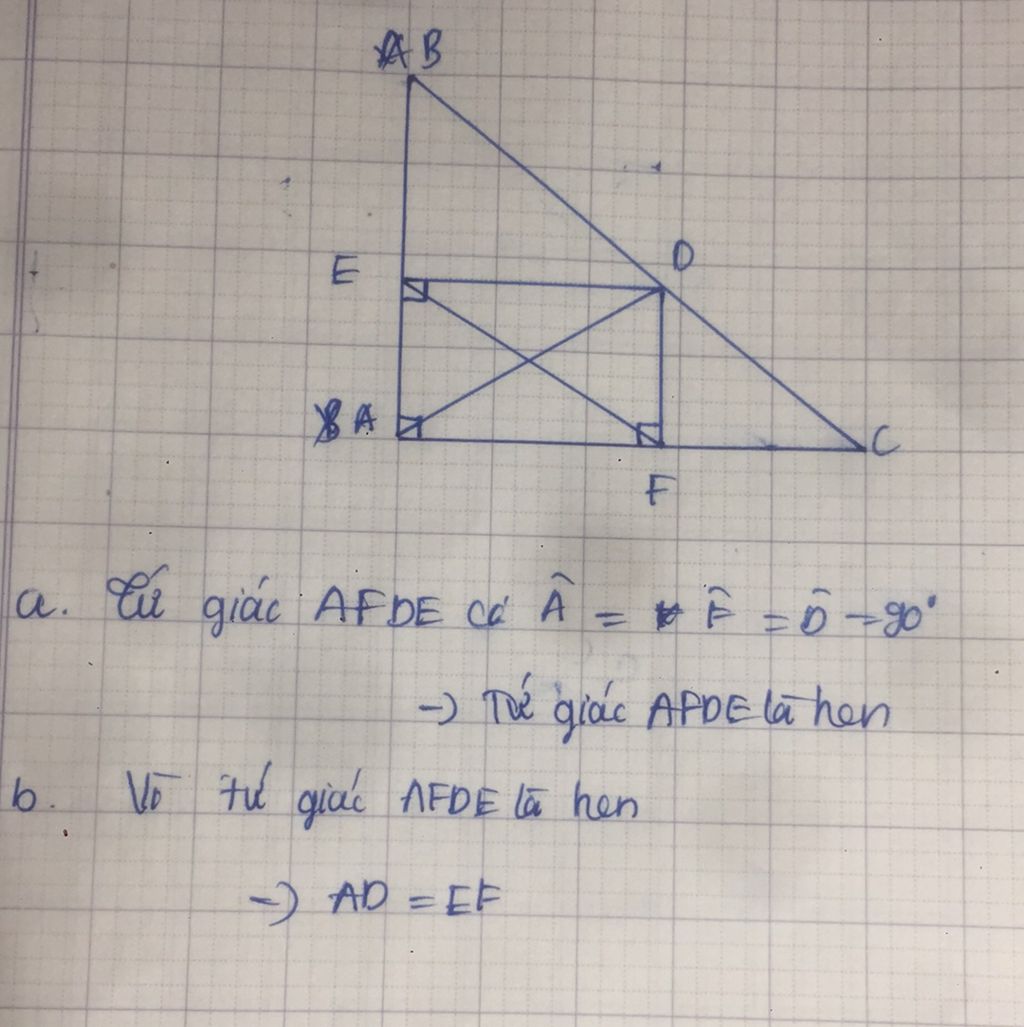 B
E
D
A
C
F
a. Tứ giác AFDE có Â = F̂ = D̂ = 90°
→ Tứ giác AFDE là hcn
b. Vì tứ giác AFDE là hcn
→ AD = EF